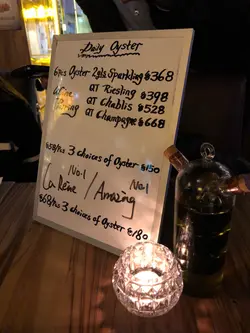 Daily Oyster
6pcs Oyster 2gls Sparkling $368
GT Riesling $398
GT Chablis $528
GT Champagne $668
3 choices of Oyster $150
No.1 No.1
La Reine / Amazing
3 choices of Oyster $180